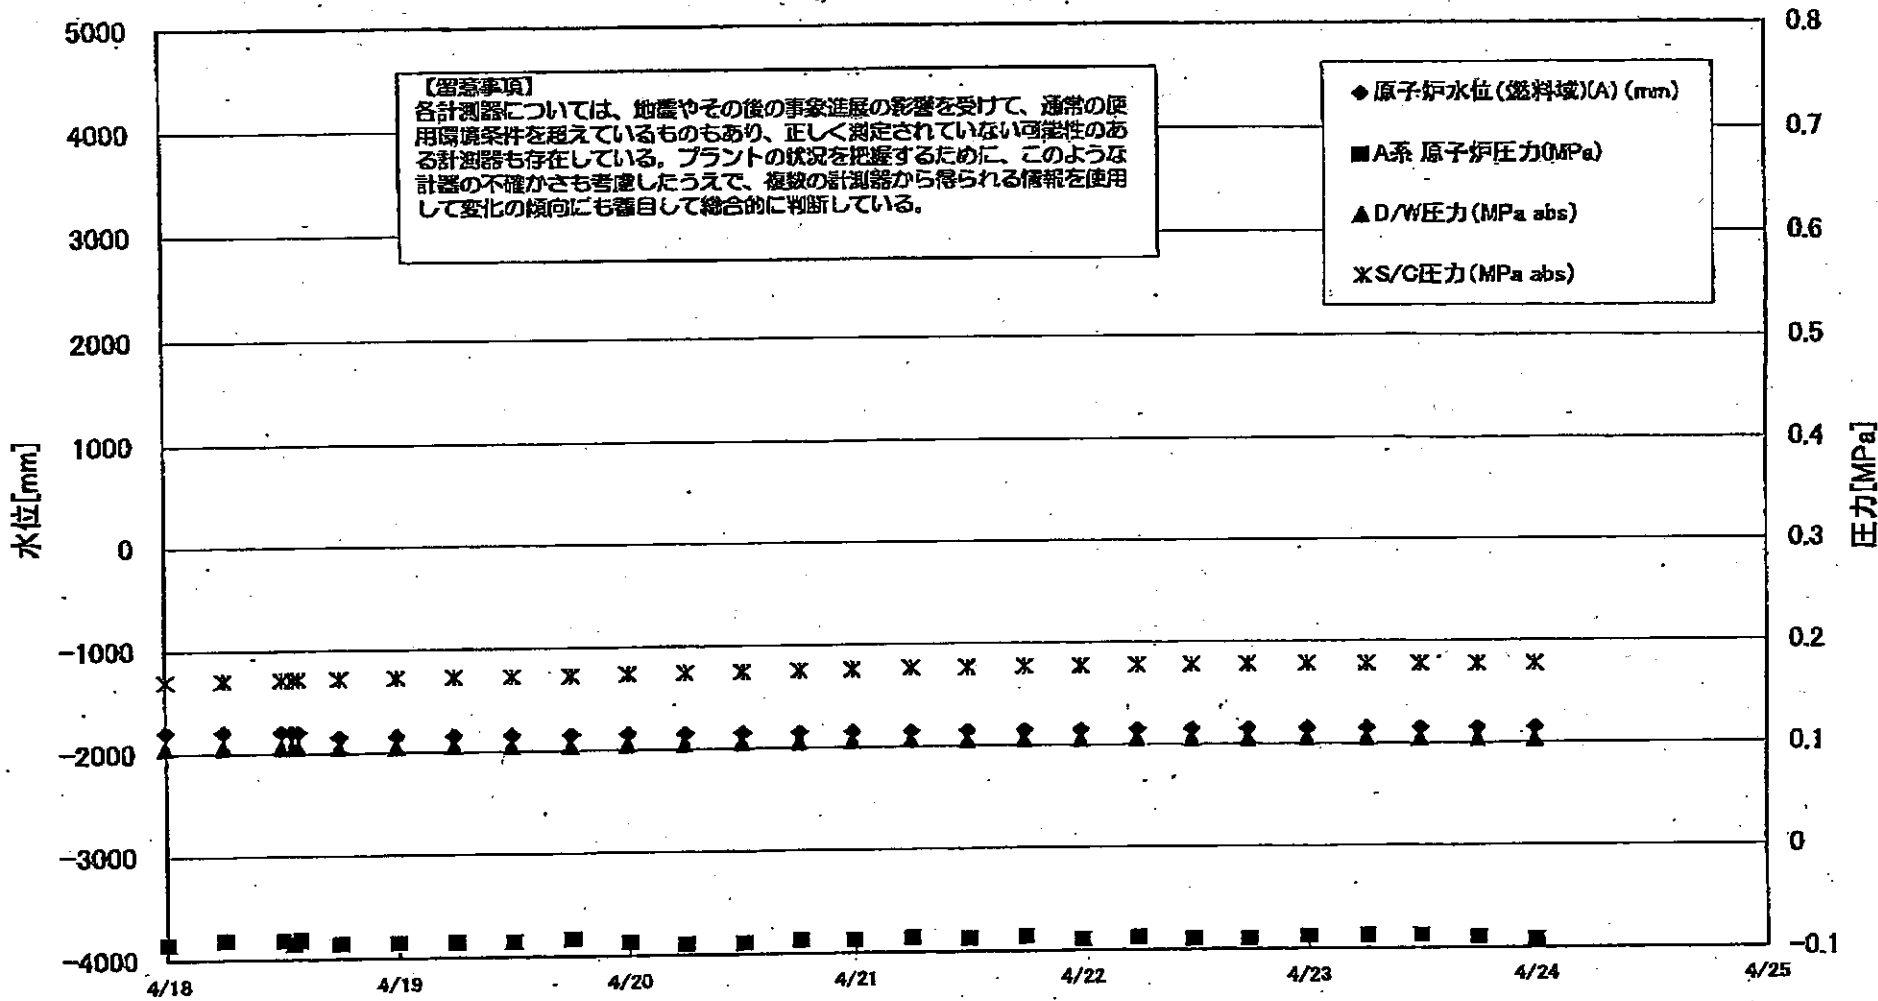 5000
4000
3000
2000
1000
0
-1000
-2000
-3000
-4000
水位[mm]
【留意事項】
各計測器については、地震やその後の事象進展の影響を受けて、通常の使
用環境条件を超えているものもあり、正しく測定されていない可能性のあ
る計測器も存在している。プラントの状況を把握するために、このような
計器の不確かさも考慮したうえで、複数の計測器から得られる情報を使用
して変化の傾向にも着目して総合的に判断している。
◆原子炉水位(燃料域)(A)(mm)
■A系 原子炉圧力(MPa)
▲D/W圧力(MPa abs)
S/C圧力(MPa abs)
0.8
0.7
0.6
0.5
0.4
0.3
0.2
0.1
0
-0.1
圧力[MPa]
4/18
4/19
4/20
4/21
4/22
4/23
4/24
4/25